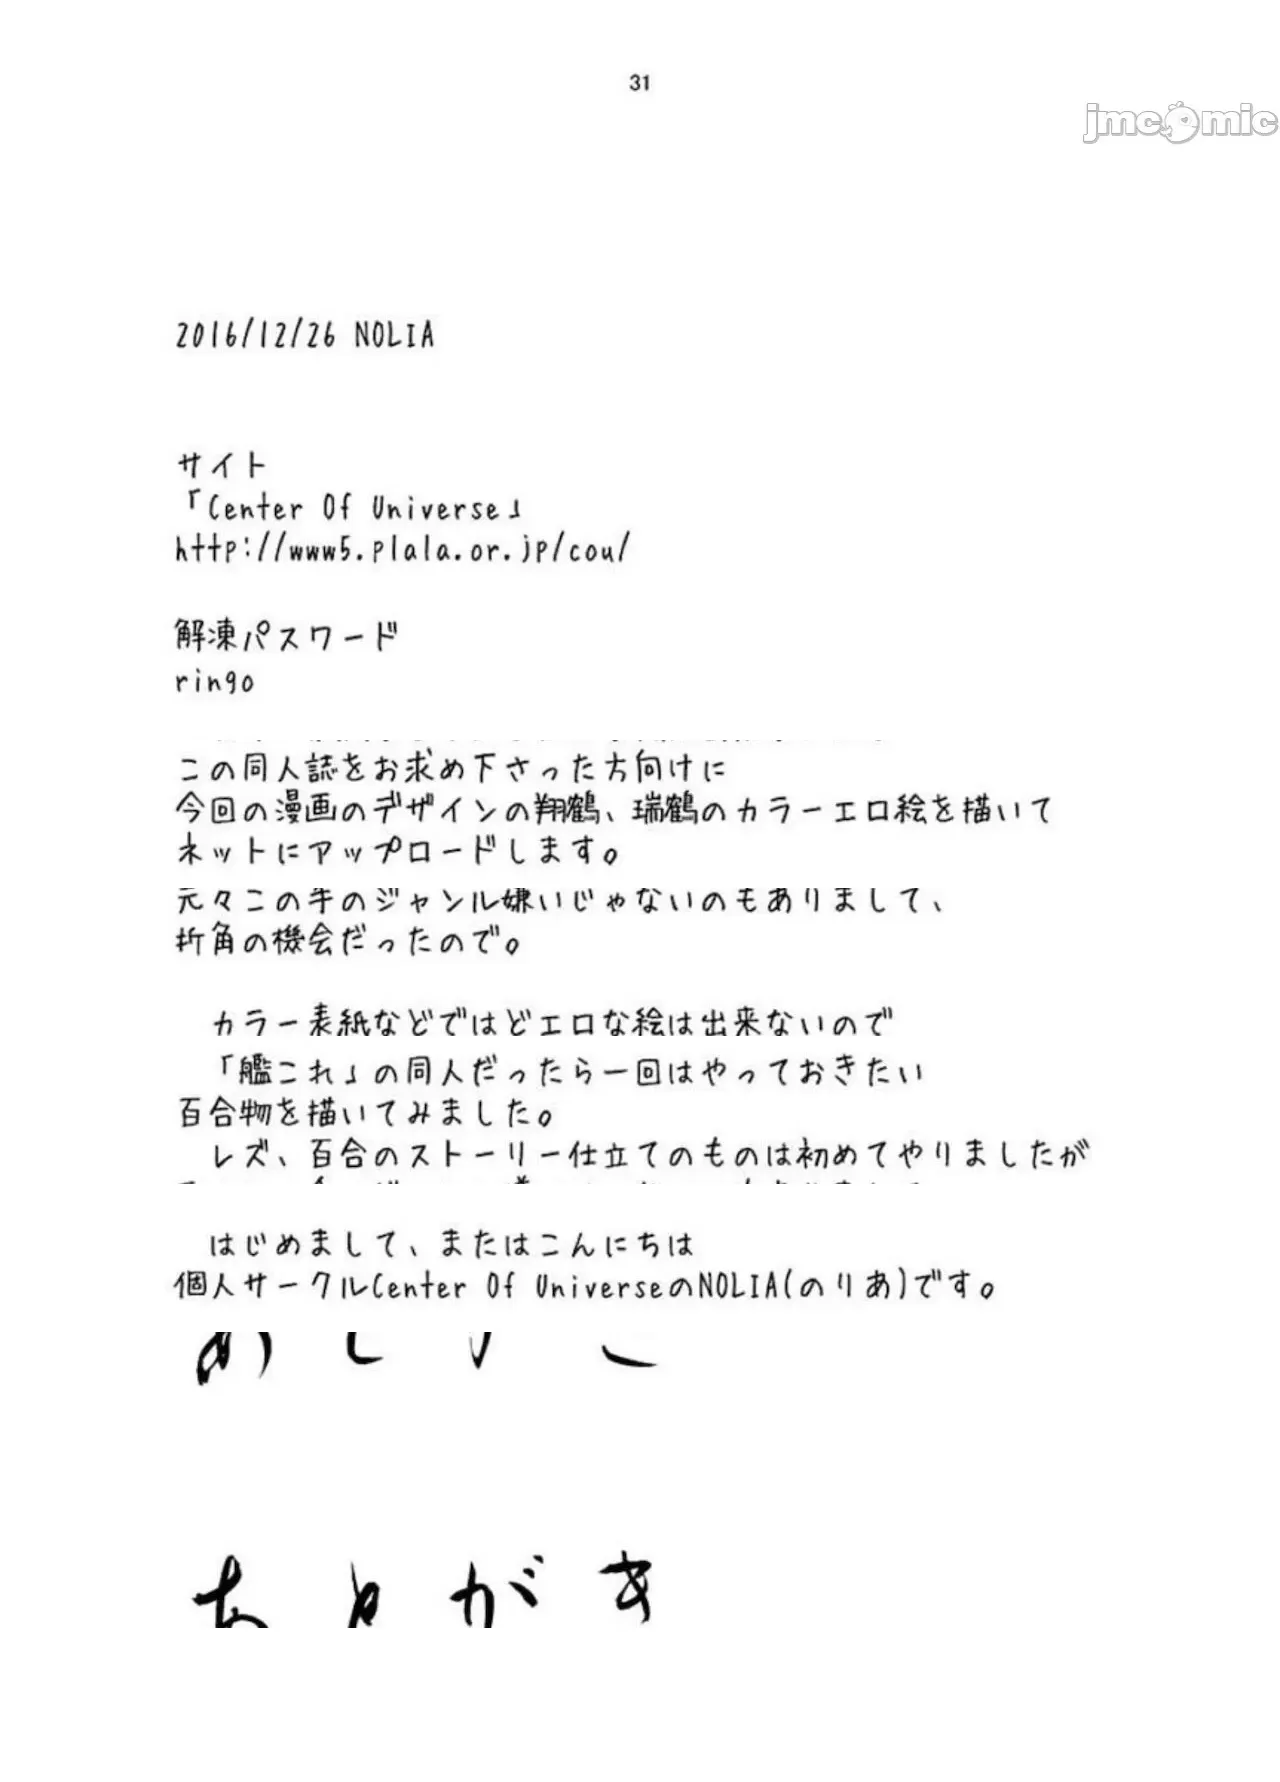 31
jmcomic
2016/12/26 NOLIA
サイト
「Center Of Universe」
http://www5.plala.or.jp/cou/
解凍パスワード
ringo
この同人誌をお求め下さった方向けに
今回の漫画のデザインの翔鶴、瑞鶴のカラーエロ絵を描いて
ネットにアップロードします。
元々この手のジャンル嫌いじゃないのもありまして、
折角の機会だったので。
カラー表紙などではどエロな絵は出来ないので
「艦これ」の同人だったら一回はやっておきたい
百合物を描いてみました。
レズ、百合のストーリー仕立てのものは初めてやりましたが
はじめまして、またはこんにちは
個人サークルCenter Of UniverseのNOLIA(のりあ)です。
あとがき